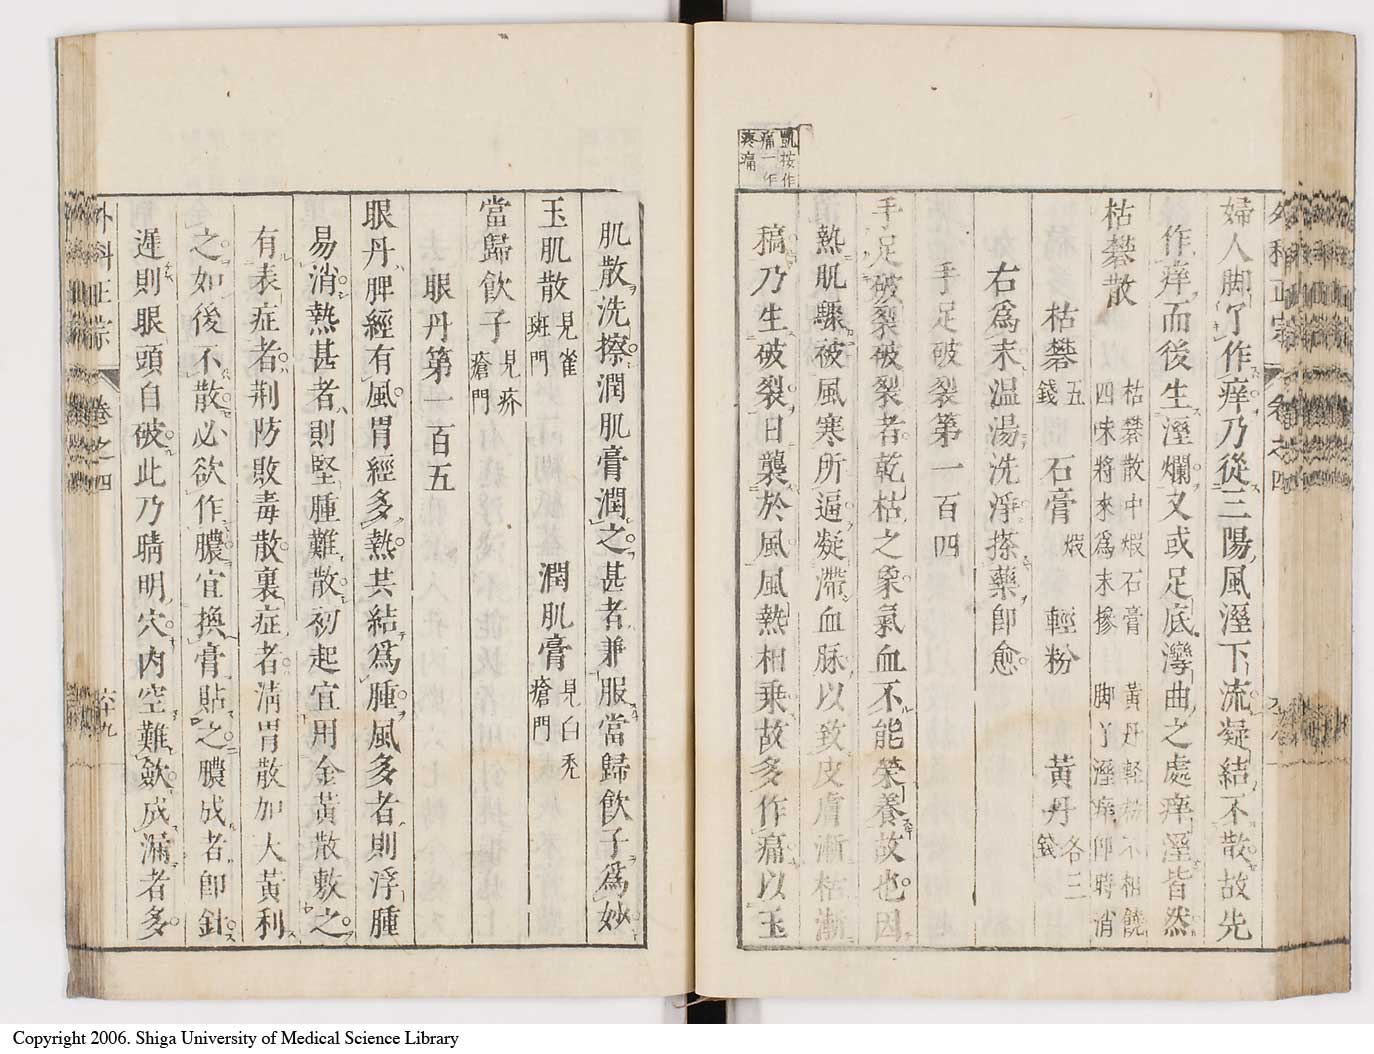 外科正宗 卷之四
婦人脚了作痒乃從三陽風溼下流凝結不散故先
作痒而後生溼爛又或足底灣曲之處痒溼皆然
枯礬散 枯礬散中煆石膏 黃丹輕粉不相饒
四味將來爲末摻 脚丫溼痒卽聘消
枯礬五錢 石膏煆 輕粉 黃丹各三錢
右爲末温湯洗淨搽藥卽愈
手足破裂第一百四
手足破裂破裂者乾枯之象氣血不能榮養故也因
熱肌驟被風寒所逼凝滯血脉以致皮膚漸枯漸
稿乃生破裂日襲於風風熱相乗故多作痛以玉
凱按作
痛一作
疼痛
肌散洗擦潤肌膏潤之甚者兼服當歸飮子爲妙
玉肌散見雀斑門 潤肌膏見白禿瘡門
當歸飮子見疥瘡門
眼丹第一百五
眼丹脾經有風胃經多熱共結爲腫風多者則浮腫
易消熱甚者則堅腫難散初起宜用金黃散敷之
有表症者荆防敗毒散裏症者淸胃散加大黃利
之如後不散必欲作膿宜換膏貼之膿成者卽針
遲則眼頭自破此乃睛明穴内空難斂成漏者多
外科正宗 卷之四 六十九
Copyright 2006. Shiga University of Medical Science Library